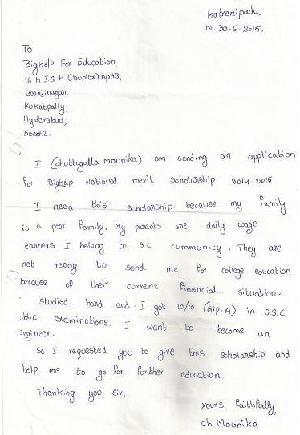 30-5-2015.
To
Bighelp For Education,
Kukatpally,
Hyderabad,
I (chuttugulla mounika) am sending an application
for Bighelp national merit scholarship 2014-2015
I need this scholarship because my family
is a poor family. my parents are daily wage
earners I belong in S.C community. They are
not ready to send me for college education
because of their current financial situation.
studied hard and I got 10/10 in S.S.C
public examinations. I want to become an
engineer.
So I requested you to give this scholarship and
help me to go for further education.
Thanking you sir,
yours faithfully,
ch Mounika